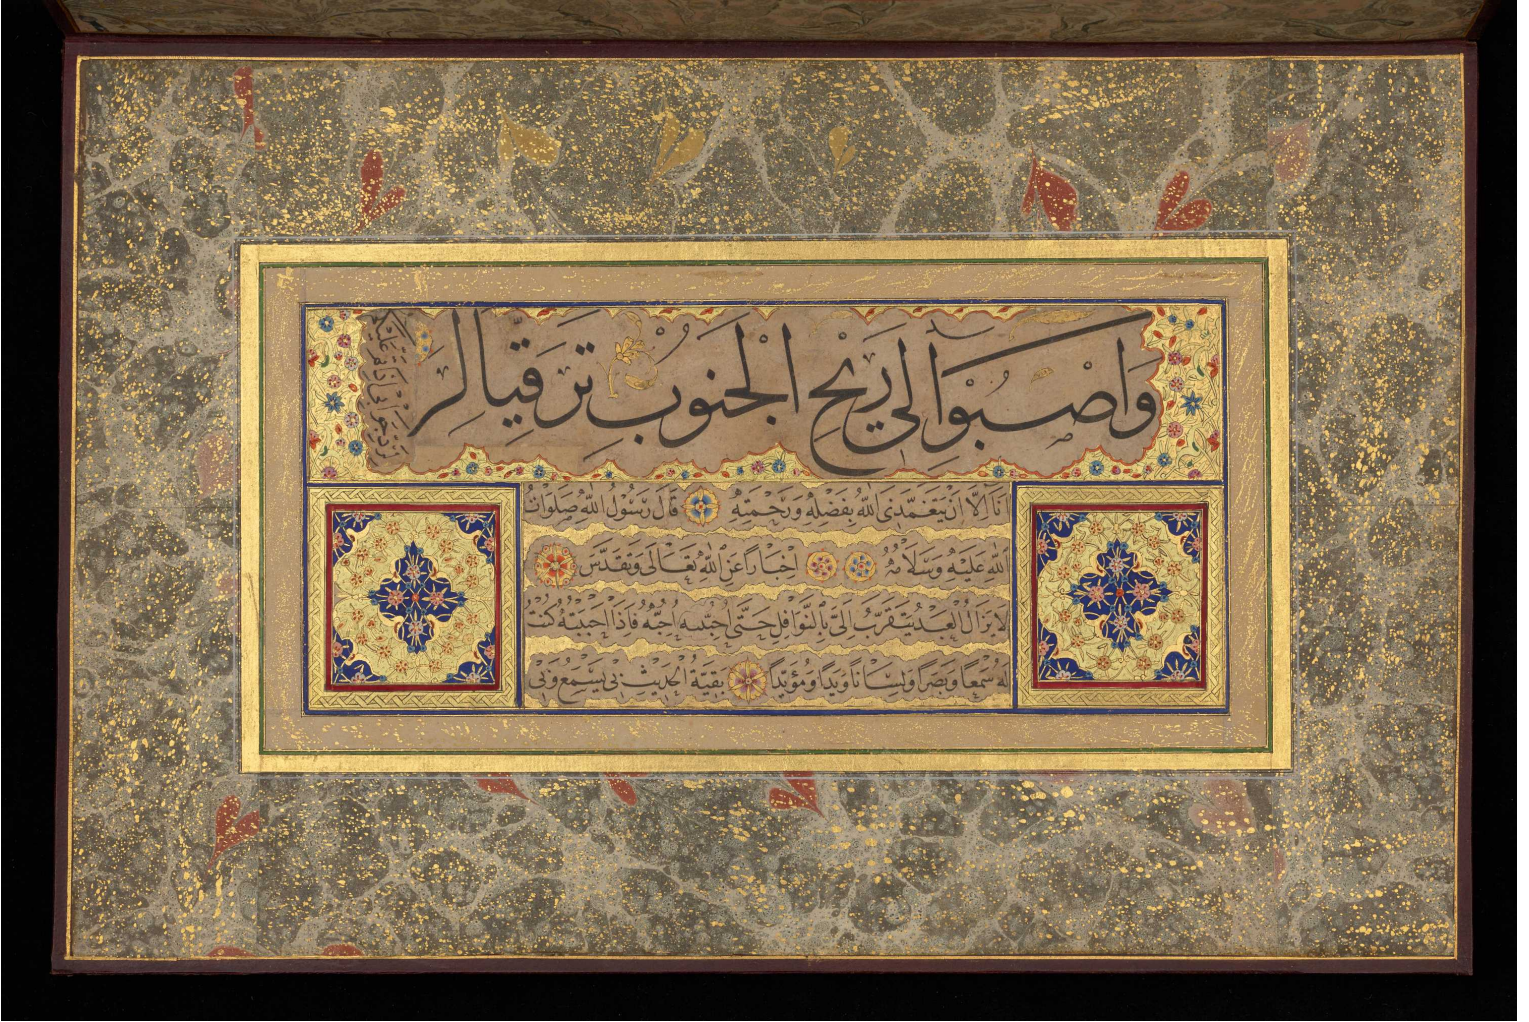 وَاصْبُوا الى رِيحِ الجَنوبِ تَرَقِّيًا لـ
انَا اِلّا اَنْ يَتَغَمَّدَنِيَ اللهُ بِفَضْلِهِ وَرَحْمَتِهِ قَالَ رَسُولُ اللهِ صَلَوَاتُ
اللهِ عَلَيْهِ وَسَلَامُهُ اِخْبَاراً عَنِ اللهِ تَعَالَى وَتَقَدَّسَ
لَا يَزَالُ العَبْدُ يَتَقَرَّبُ اِلَيَّ بِالنَّوَافِلِ حَتَّى اُحِبَّهُ فَاِذَا اَحْبَبْتُهُ كُنْتُ
لَهُ سَمْعًا وَبَصَرًا وَلِسَانًا وَيَدًا وَمُؤَيِّدًا بَقِيَّةُ الْحَدِيثِ بِي يَسْمَعُ وَبِي